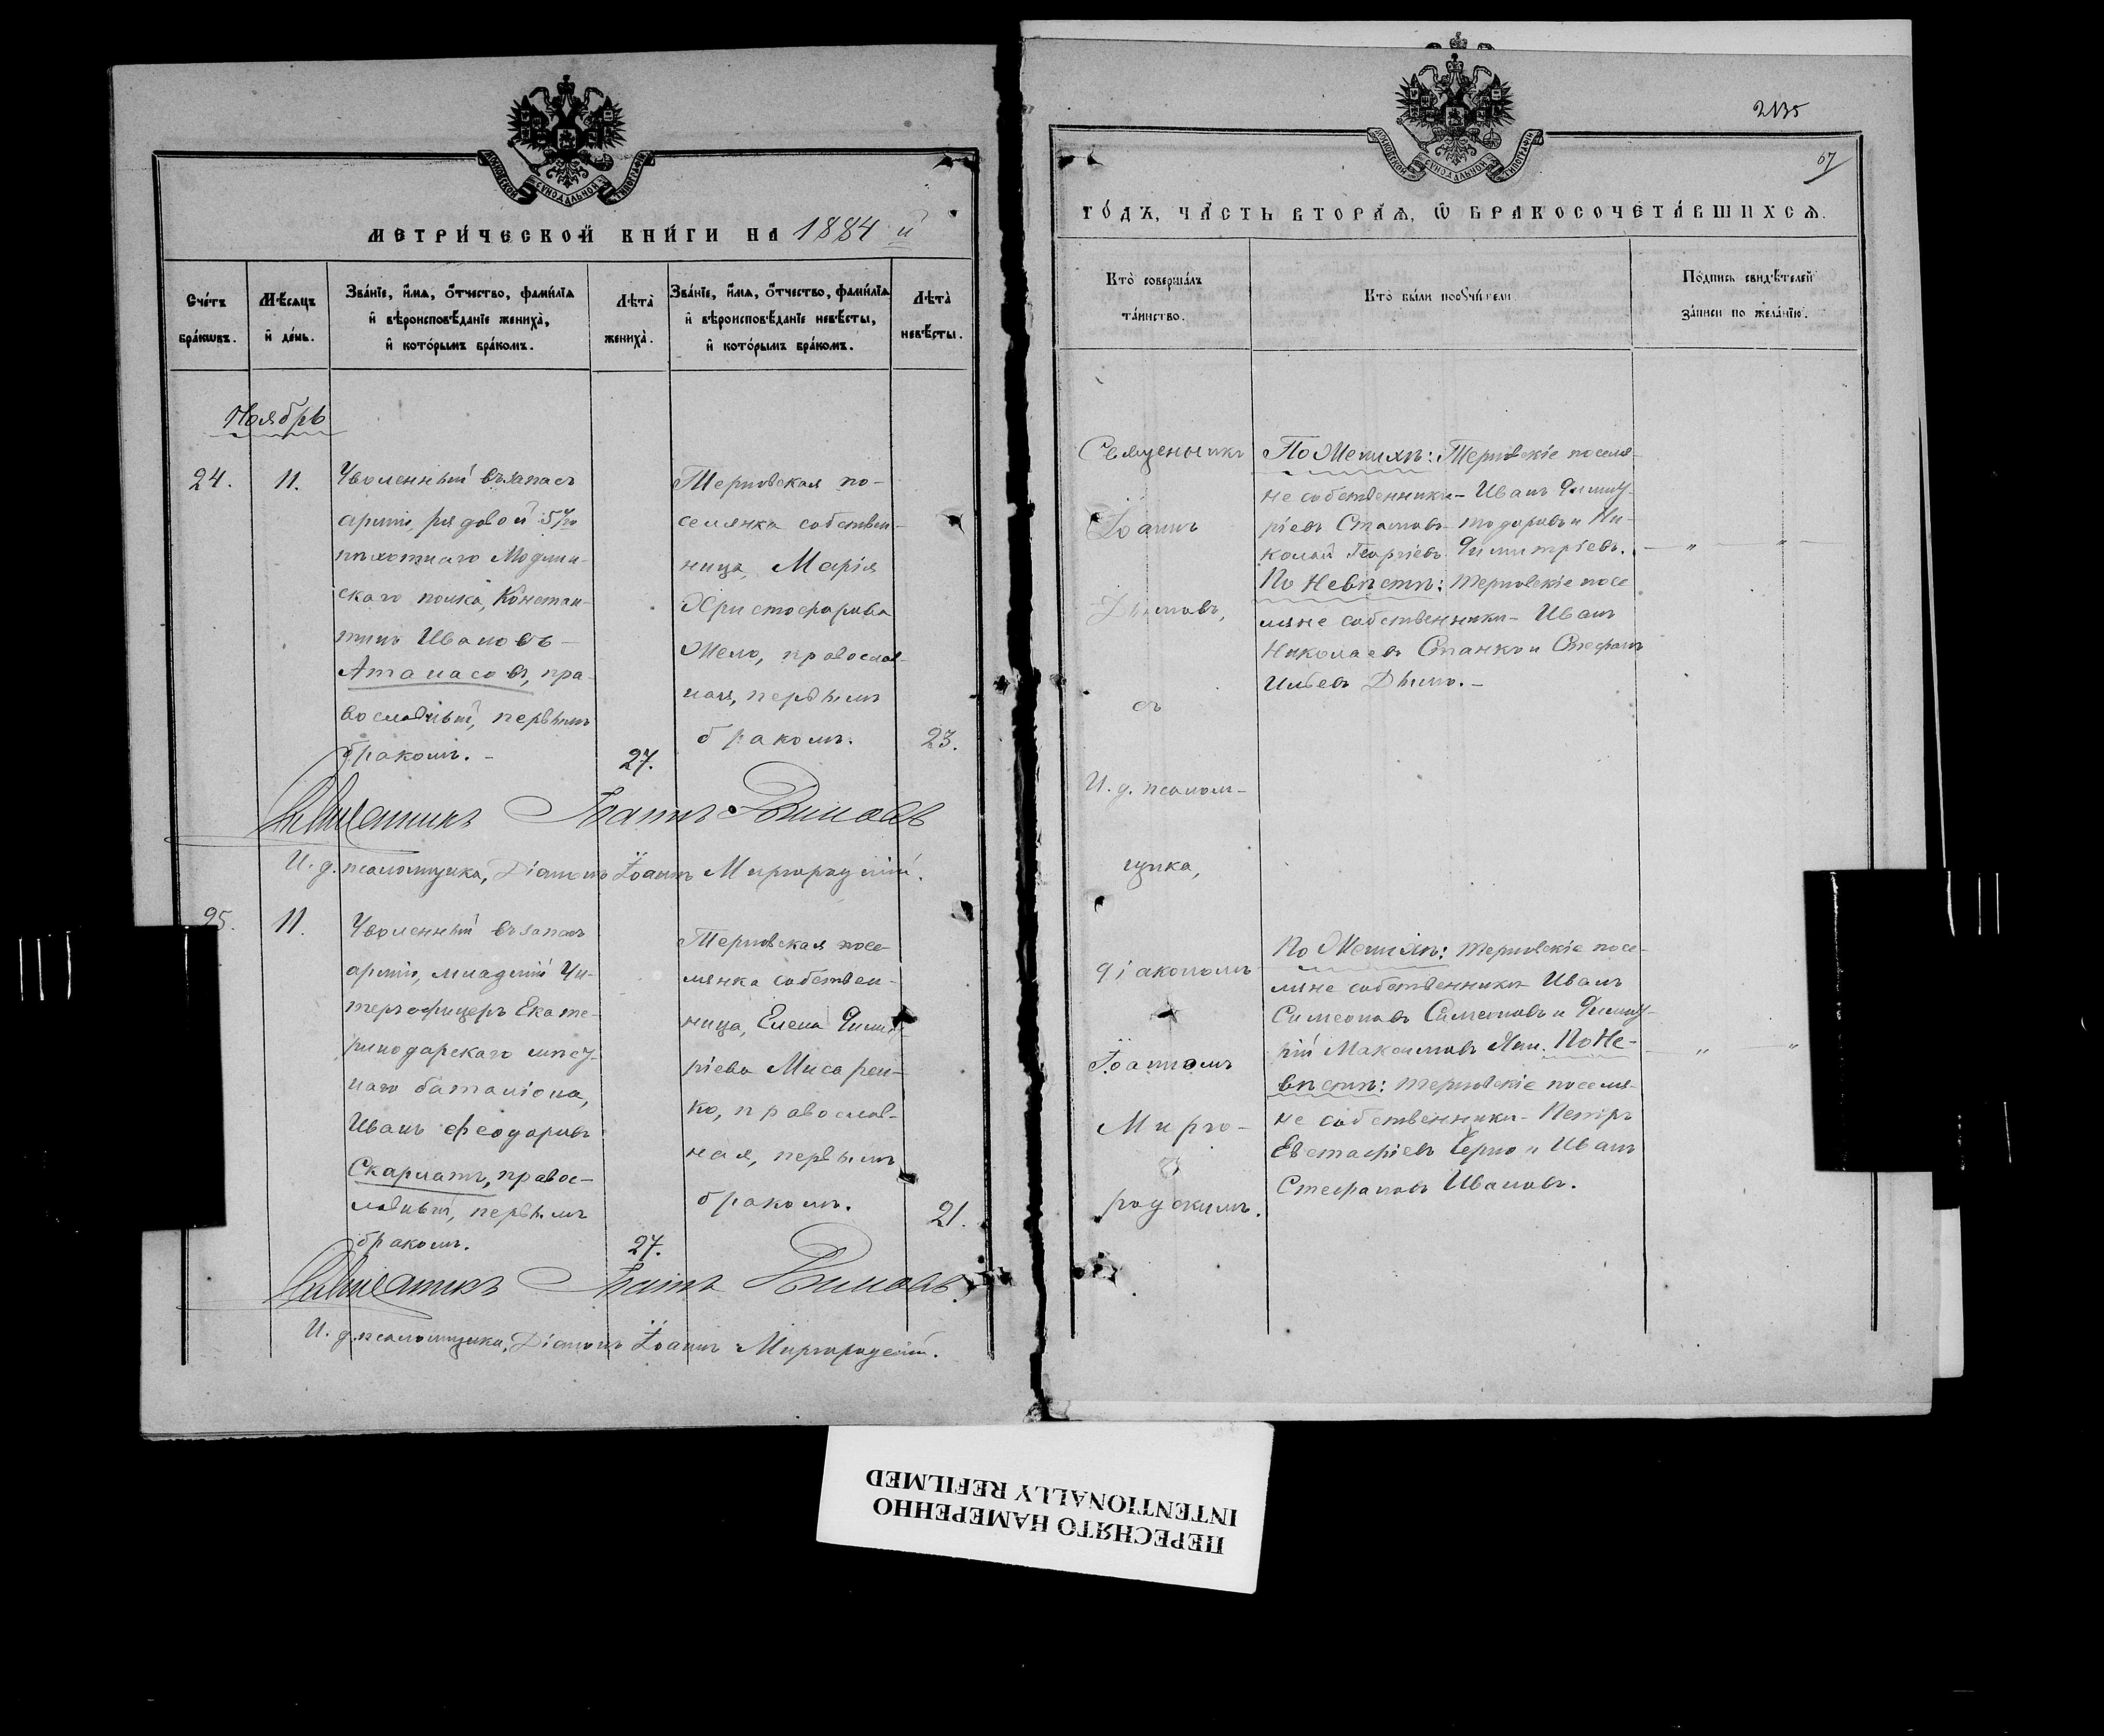 МОСКОВСКОЙ СѴНОДАЛЬНОЙ ТИПОГРАФІИ
МЕТРИ́ЧЕСКОЙ КНИ́ГИ НА 1884 й
Сче́тъ бра́кѡвъ.
Мѣ́сяцъ и҆ де́нь.
Зва́нїе, и҆́мя, ѻ҆́тчество, фами́лїя
и҆ вѣроисповѣ́данїе жениха̀,
и҆ кото́рымъ бра́комъ.
Лѣта̀ жениха̀.
Зва́нїе, и҆́мя, ѻ҆́тчество, фами́лїя
и҆ вѣроисповѣ́данїе невѣ́сты,
и҆ кото́рымъ бра́комъ.
Лѣта̀ невѣ́сты.
Ноябрь
24.
11.
Уволенный въ запасъ
арміи, рядовой 57го
пѣхотнаго Модлин-
скаго полка, Констан-
тинъ Ивановъ
Атанасовъ, пра-
вославный, первымъ
бракомъ.
27.
Терновская по-
селянка собствен-
ница, Марія
Христофорова
Жело, православ-
ная, первымъ
бракомъ.
23.
Священникъ Іоаннъ Дымовъ
И. д. псаломщика, Діаконъ Іоаннъ Миргородскій.
25.
11.
Уволенный въ запасъ
арміи, младшій Ун-
теръ офицеръ Екате-
ринодарскаго мѣст-
наго баталіона,
Иванъ Феодоровъ
Скарлатъ, правос-
лавный, первымъ
бракомъ.
27.
Терновская посе-
лянка собствен-
ница, Елена Димит-
ріева Мисарен-
ко, православ-
ная, первымъ
бракомъ.
21.
Священникъ Іоаннъ Дымовъ.
И. д. псаломщика, Діаконъ Іоаннъ Миргородскій.
2135
67
МОСКОВСКОЙ СѴНОДАЛЬНОЙ ТИПОГРАФІИ
ГО́ДЪ, ЧА́СТЬ ВТОРА́Я, Ѡ҆ БРАКОСОЧЕТА́ВШИХСЯ.
Кто̀ соверша́лъ
та́инство.
Кто̀ бы́ли порꙋчи́тели.
По́дпись свидѣ́телей
за́писи по жела́нїю.
Священникъ
Іоаннъ
Дымовъ,
съ
И. д. псалом-
щика,
діакономъ
Іоанномъ
Мирго-
родскимъ.
По Женихѣ: Терновскіе поселя-
не собственники - Иванъ Димит-
ріевъ Стаматъ Тодоровъ и Ни-
колай Георгіевъ Димитріевъ.
По Невѣстѣ: терновскіе посе
ляне собственники - Иванъ
Николаевъ Станко и Стефанъ
Ильевъ Дымо. -
По Женихѣ: терновскіе посе-
ляне собственники Иванъ
Симеоновъ Симеоновъ и Димит-
рій Максимовъ Яни. По Не-
вѣстѣ: терновскіе поселя-
не собственники - Петръ
Евстафіевъ Черно и Иванъ
Стефановъ Ивановъ.
ПЕРЕСНЯТО НАМЕРЕННО
INTENTIONALLY REFILMED